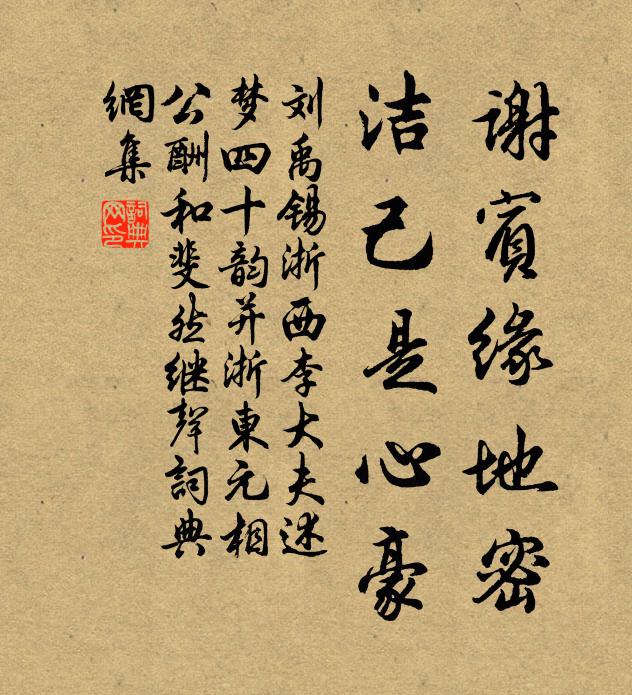 谢宾缘地密
洁己是心豪
刘禹锡浙西李大夫述
梦四十韵并浙東元相
公酬和斐然继聲詞典
網集
詞典
网印